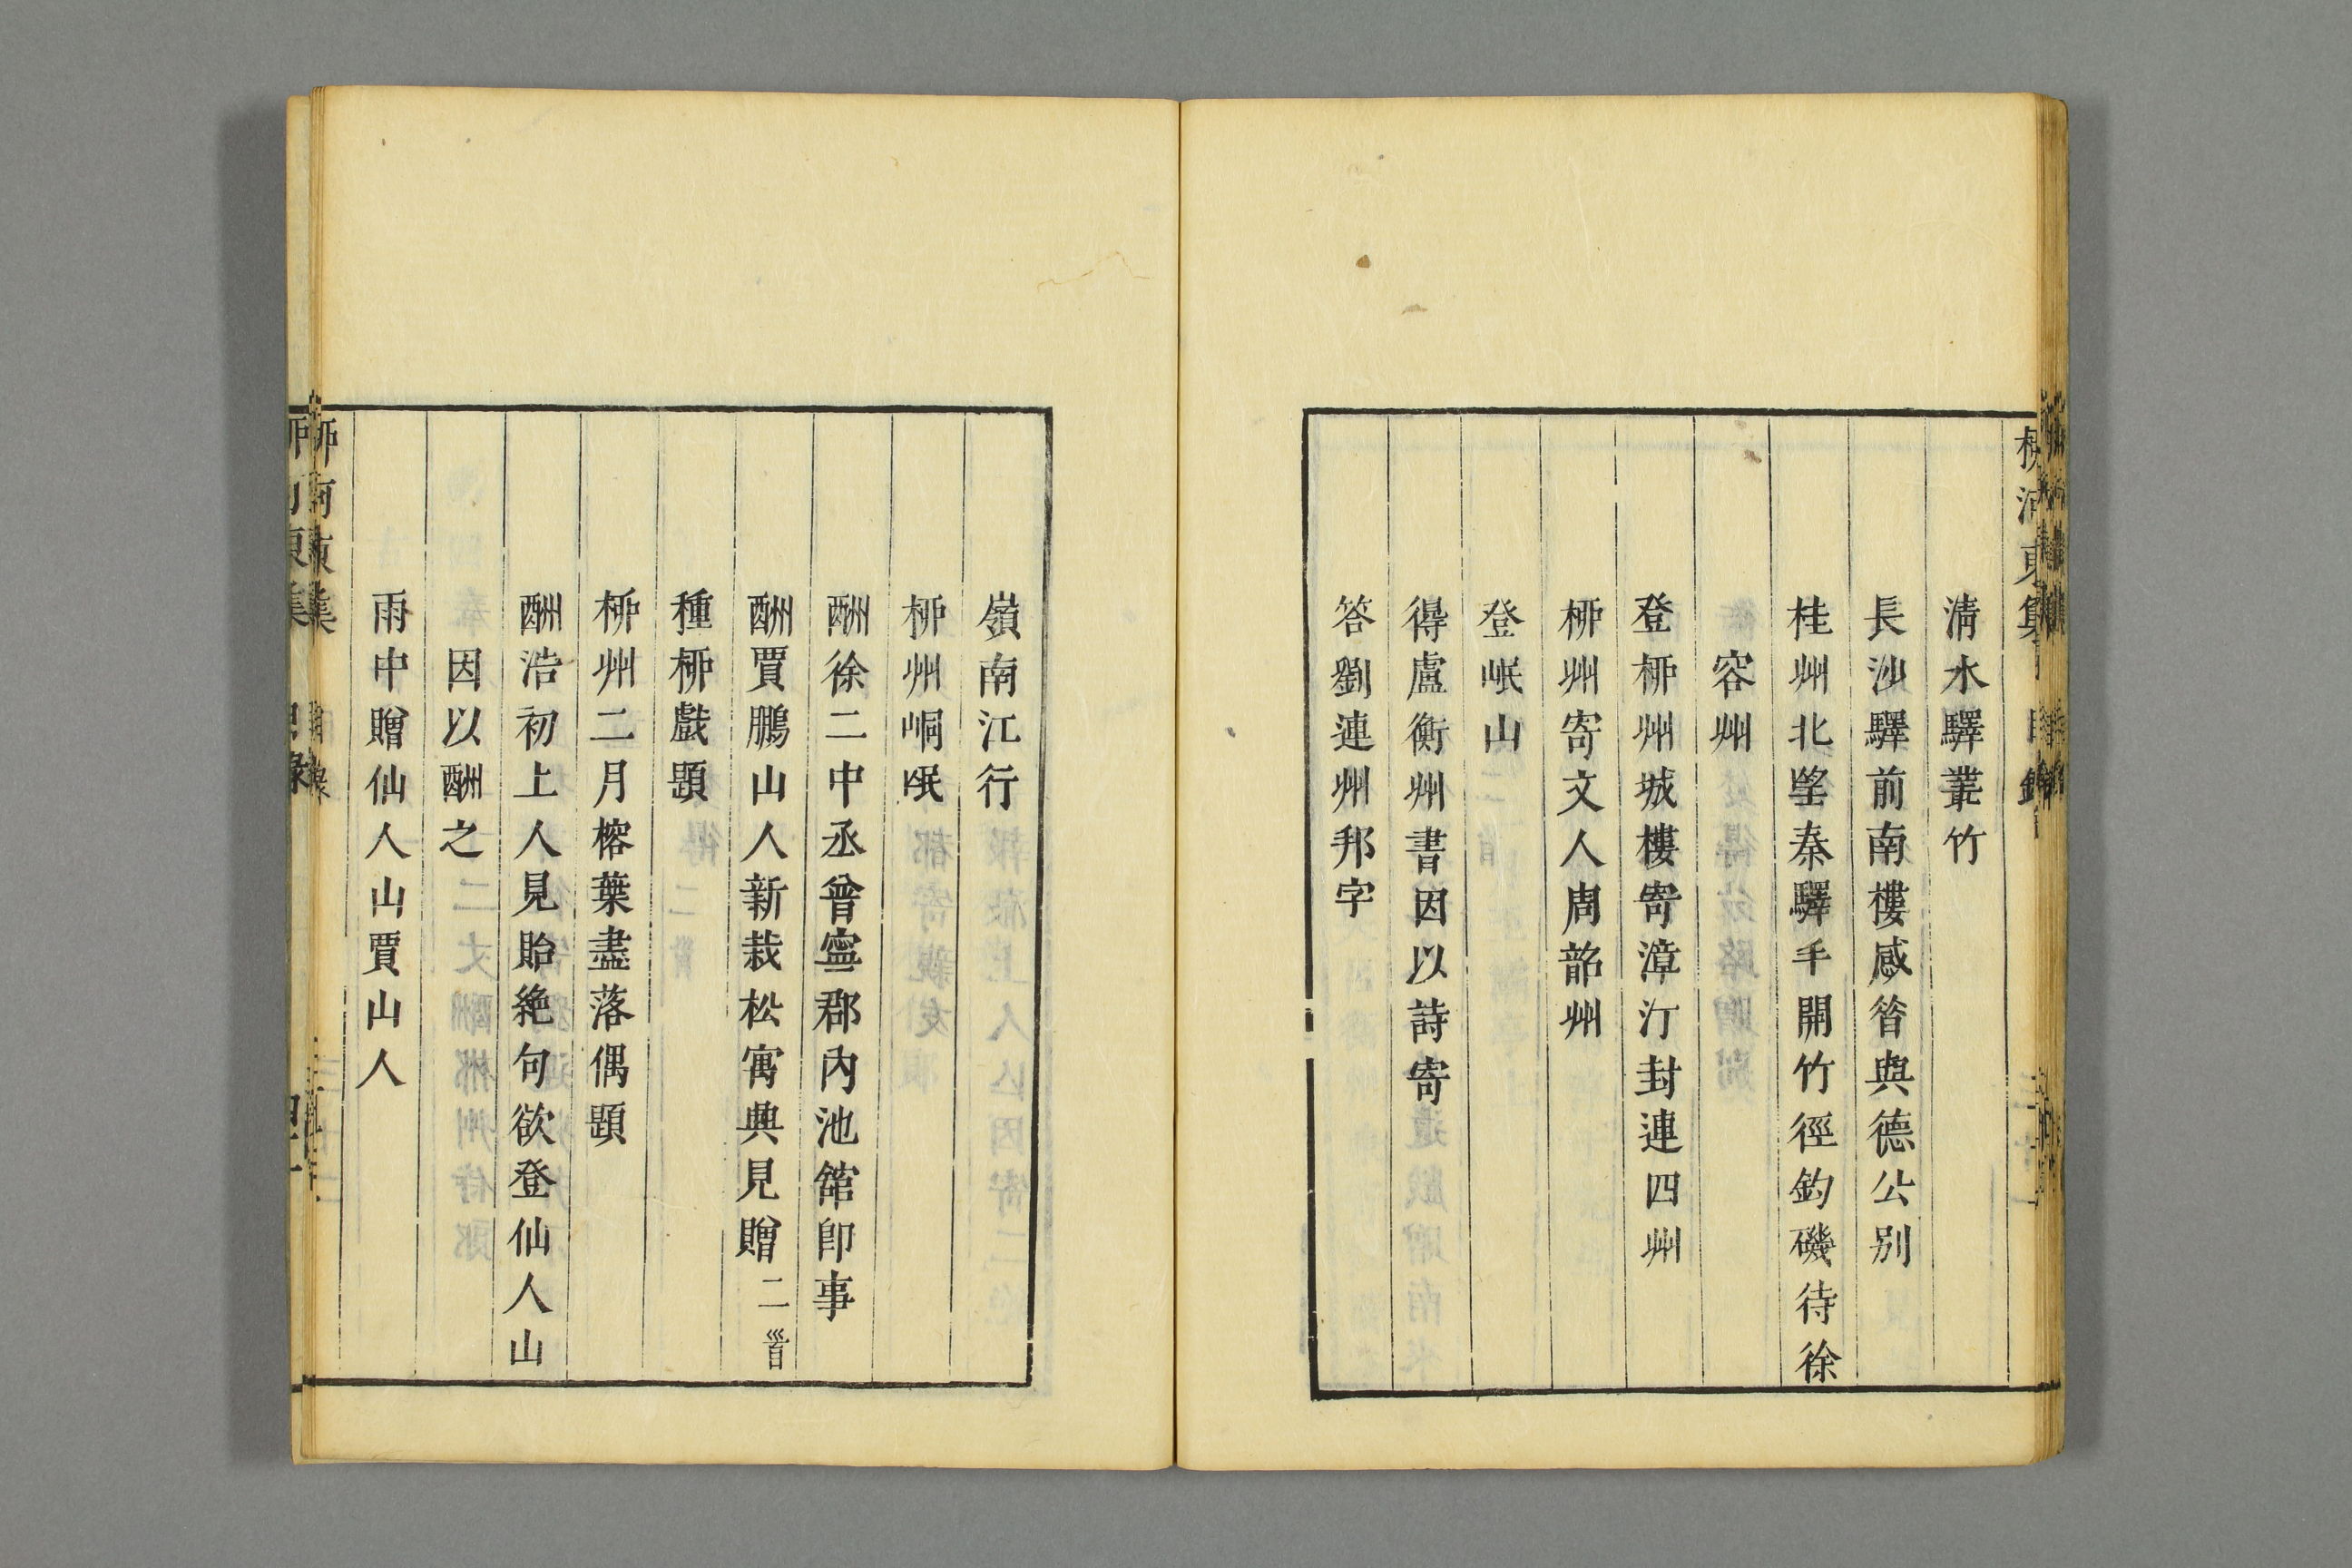 柳河東集 目錄
清水驛叢竹
長沙驛前南樓感舊與德公别
桂州北望秦驛手開竹徑釣磯待徐
容州
登柳州城樓寄漳汀封連四州
柳州寄文人周韶州
登岷山
得盧衡州書因以詩寄
答劉連州邦字
嶺南江行
柳州峒氓
酬徐二中丞普寧郡内池館卽事
酬賈鵬山人新栽松寓興見贈二首
種柳戲題
柳州二月榕葉盡落偶題
酬浩初上人見貽絶句欲登仙人山
因以酬之
雨中贈仙人山賈山人
柳河東集 目錄